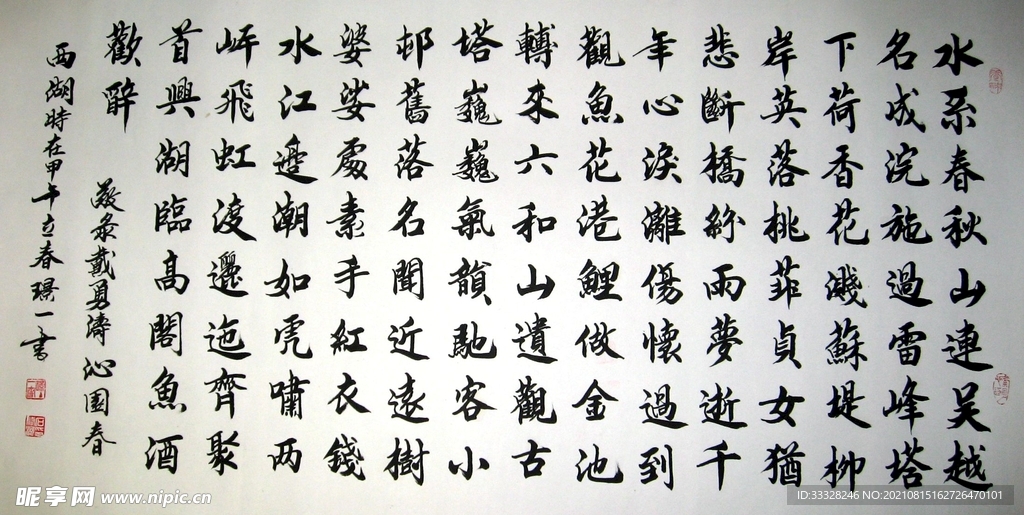 水系春秋山連吴越
名成浣施過雷峰塔
下荷香花濺蘇堤柳
岸英落桃菲貞女猶
悲斷橋紛雨夢逝千
年心淚灕傷懷過到
觀魚花港鯉做金池
轉來六和山遺觀古
塔巍巍氣韻馳客小
邨舊落名聞近遠樹
婆娑處素手紅衣錢
水江邊潮如虎嘯两
岍飛虹渡邐迤齊聚
首興湖臨高閣魚酒
歡醉
敬录戴勇濤沁園春
西湖時在甲午立春璟一书
昵享网 www.nipic.cn
ID:33328246 NO:20210815162726470101